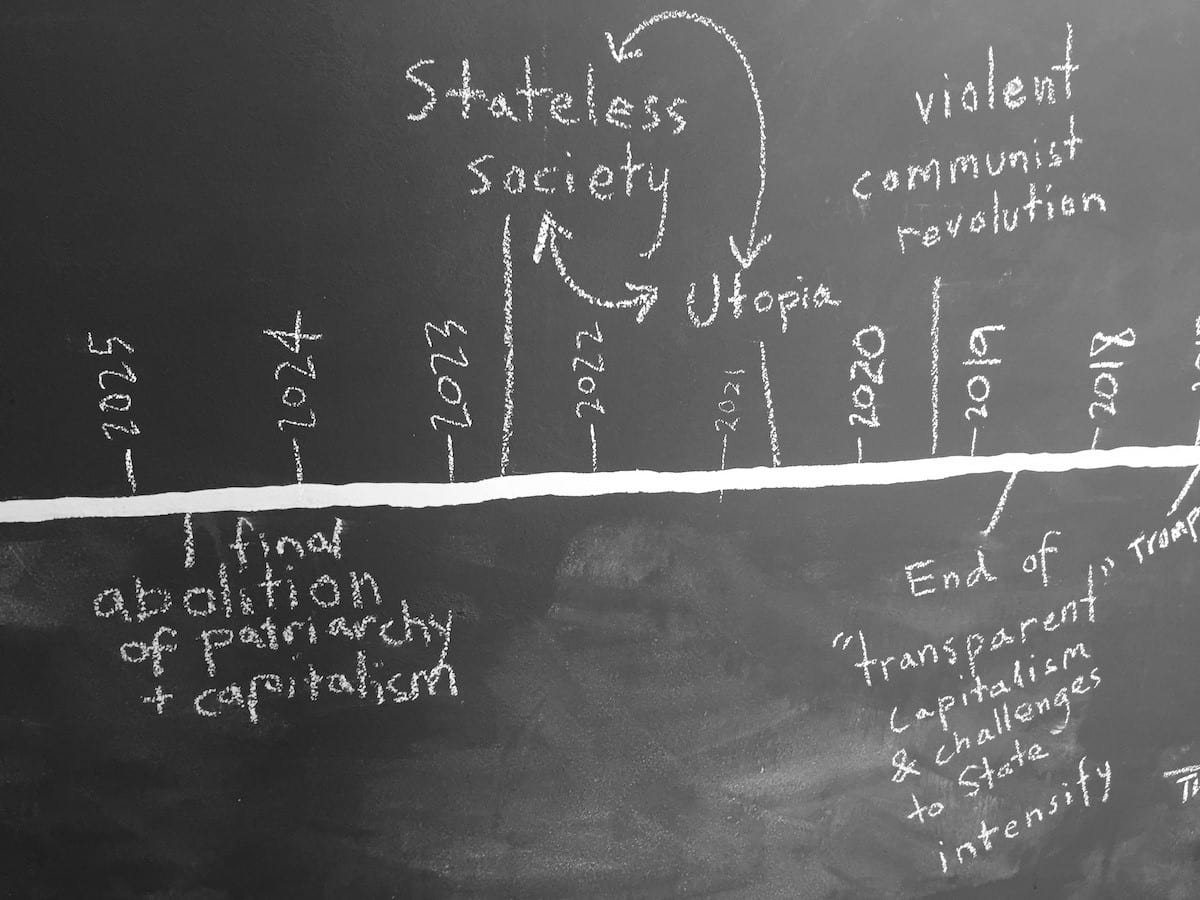 Stateless
society
violent
communist
revolution
Utopia
2025
2024
2023
2022
2021
2020
2019
2018
final
abolition
of patriarchy
+ capitalism
End of
"transparent"
capitalism
& challenges
to State
intensify
Tromp